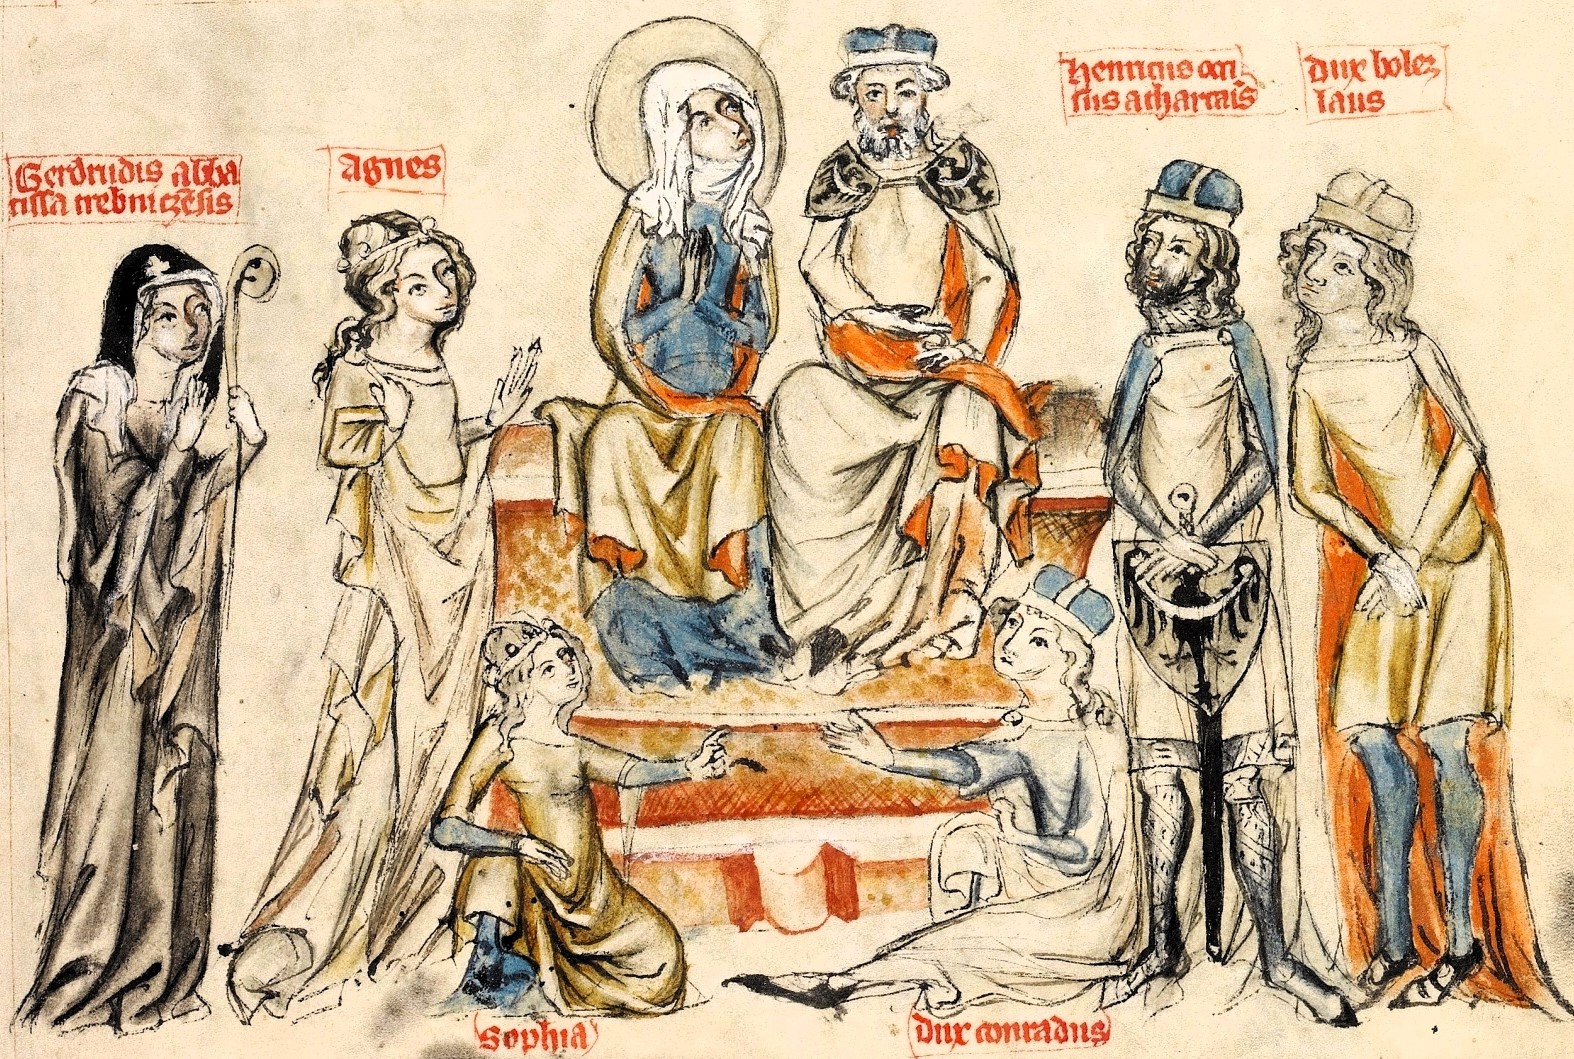 Gerdrudis abba
tissa trebniczēsis
Agnes
Henricus occi
sus a thartaīs
dux bolez
laus
Sophia
dux conradus